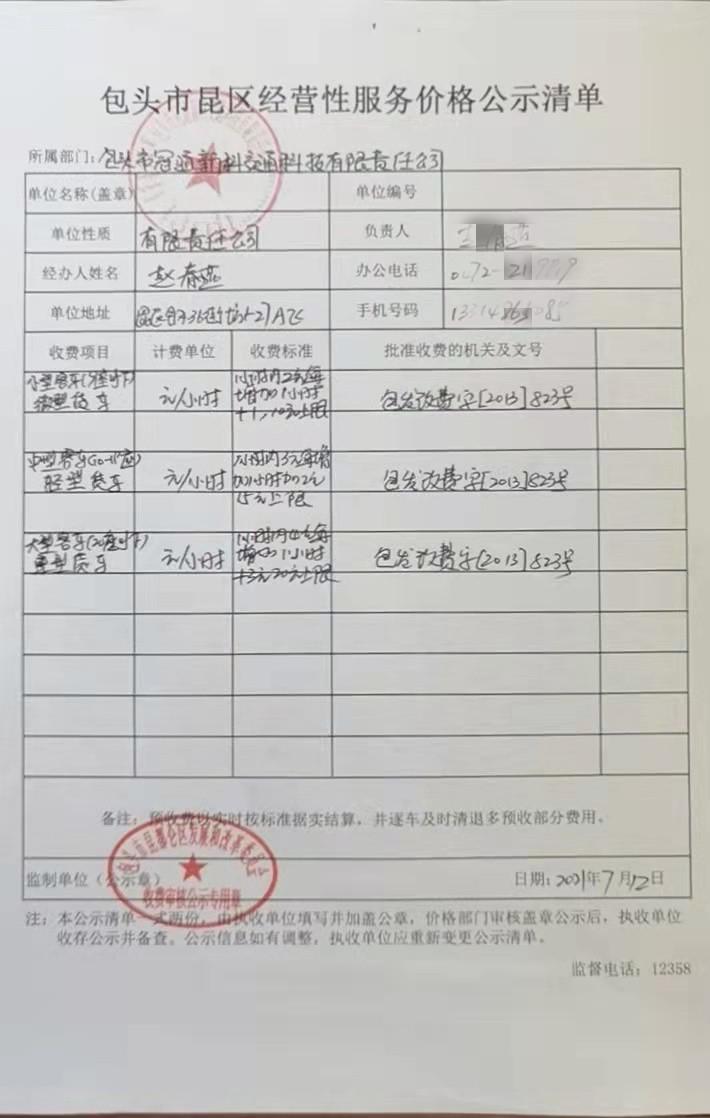 包头市昆区经营性服务价格公示清单
所属部门：包头市冠通新科交通科技有限责任公司
单位名称(盖章) 单位编号
单位性质 有限责任公司 负责人
经办人姓名 赵春 办公电话 0472-
单位地址 手机号码
收费项目 计费单位 收费标准 批准收费的机关及文号
小型客车 1小时内2元每
微型货车 元/小时 增加1小时 包发改费字[2013]823号
+1，10元上限
中型客车 1小时内3元每增
轻型货车 元/小时 加1小时加2元 包发改费字[2013]823号
15元上限
大型客车 1小时内4元每
重型货车 元/小时 增加1小时 包发改费字[2013]823号
+3元20元上限
备注：预收费以实时按标准据实结算，并逐车及时清退多预收部分费用。
包头市昆都仑区发展和改革委员会
收费审核公示专用章
监制单位（公示章） 日期：2021年7月12日
注：本公示清单一式两份，由执收单位填写并加盖公章，价格部门审核盖章公示后，执收单位
收存公示并备查。公示信息如有调整，执收单位应重新变更公示清单。
监督电话：12358